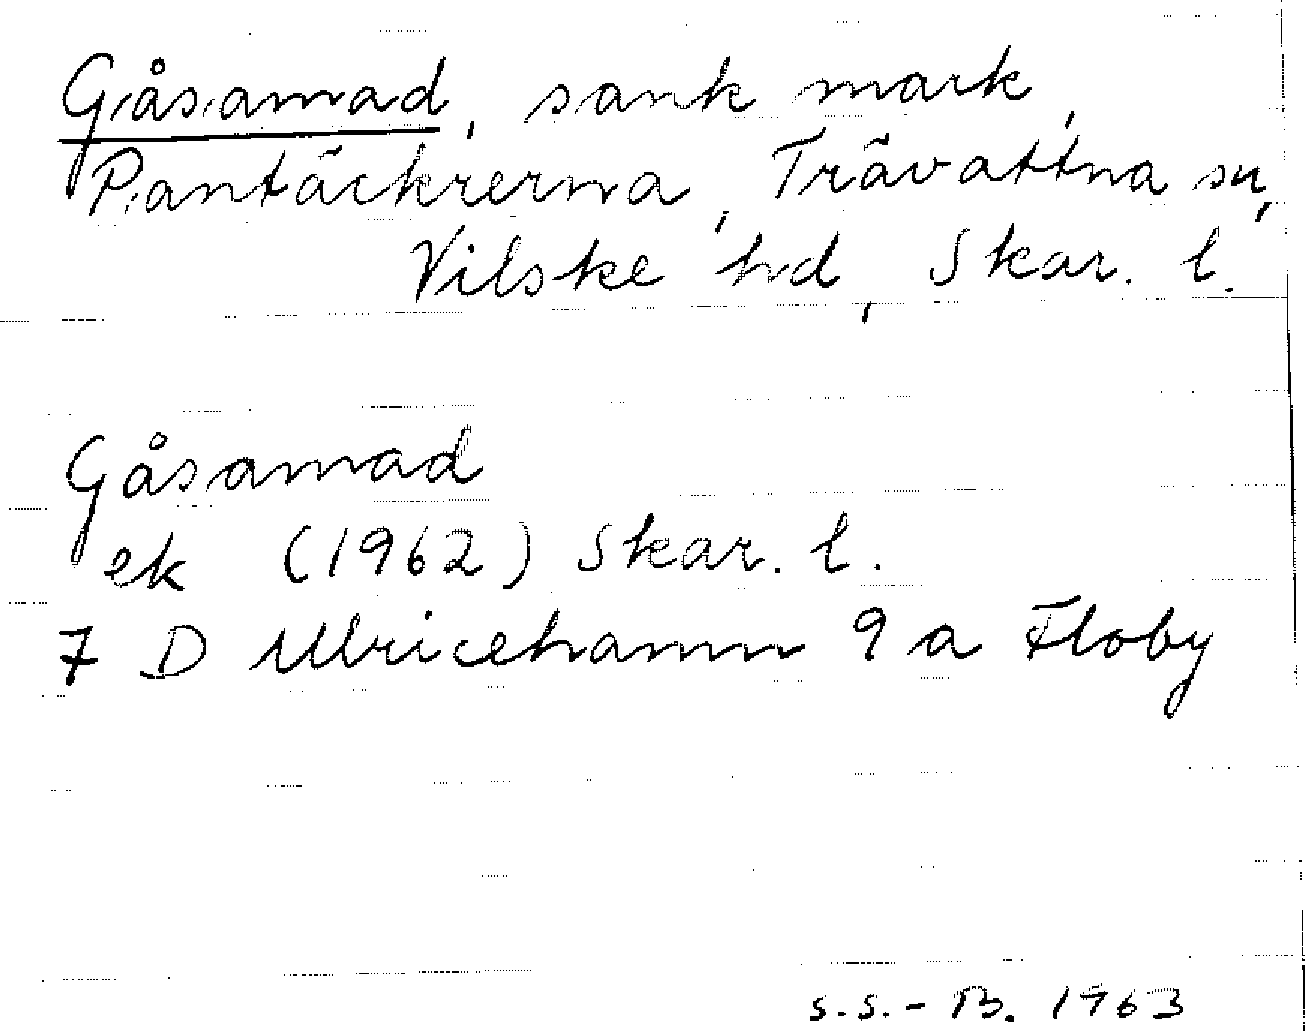 Gåsamad, sank mark,
Pantäckrerna, Trävattna sn,
Vilske hd, Skar. l.
Gåsamad
ek (1962) Skar. l.
7 D Ulricehamn 9 a Floby
S.S.-B. 1963